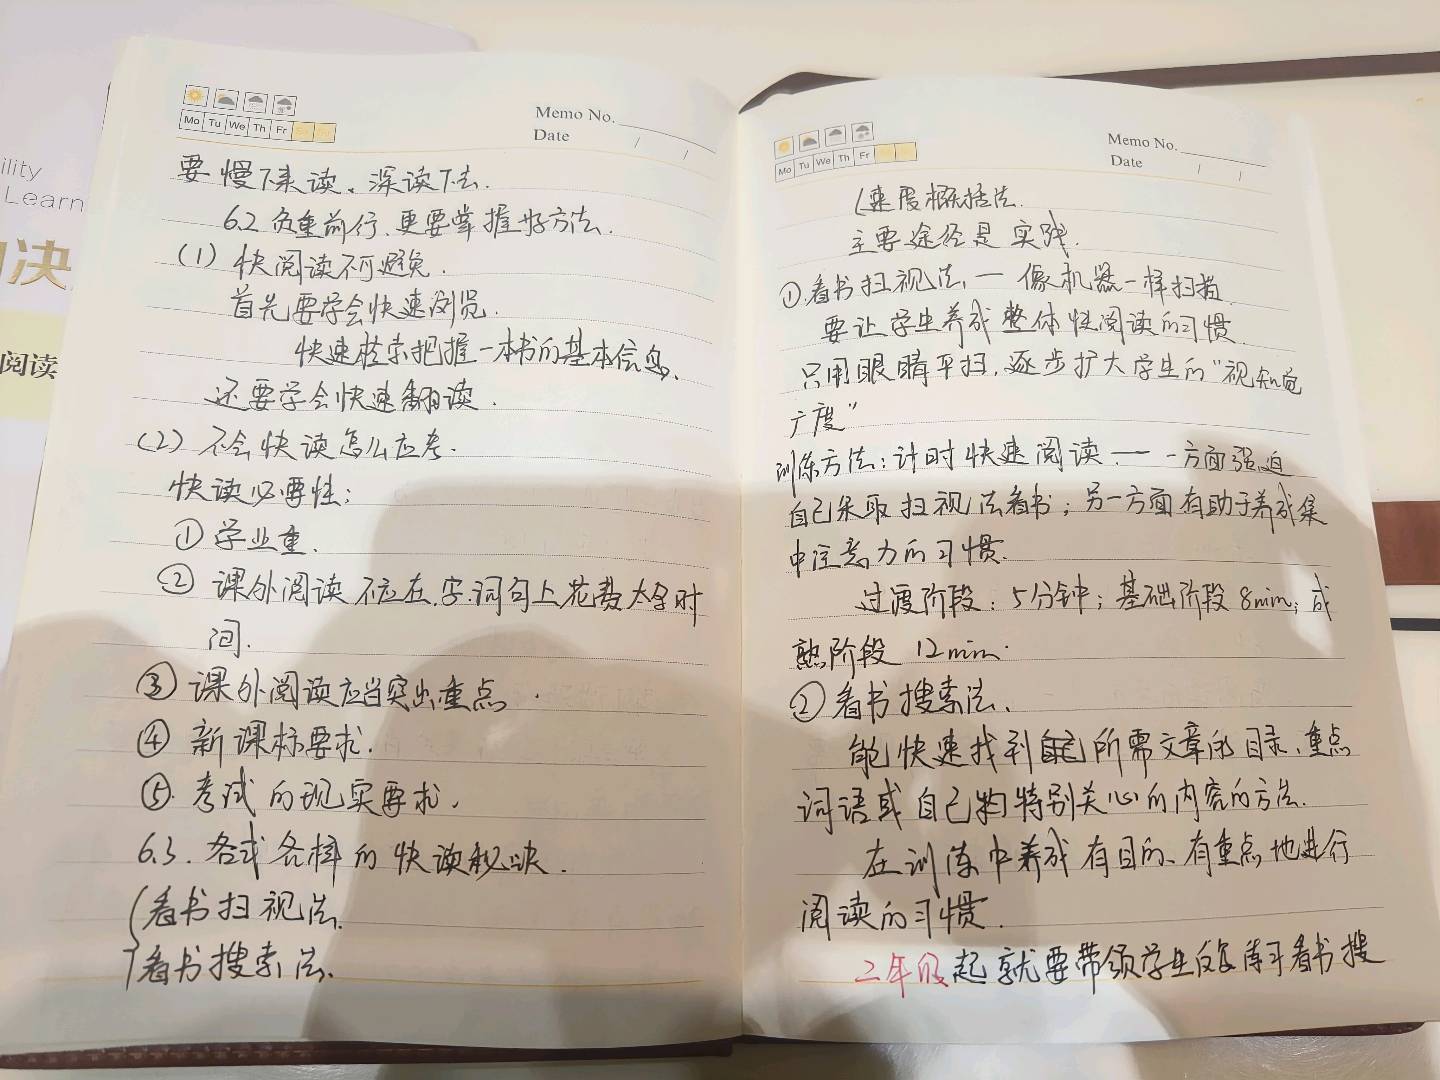 ility
Learn
决
阅读
Mo Tu We Th Fr
Memo No.
Date / /
要慢下来读、深读下去.
6.2 负重前行.更要掌握好方法.
(1) 快阅读不可避免.
首先要学会快速浏览.
快速检索把握一本书的基本信息、
还要学会快速翻读.
(2) 不会快读怎么应考.
快读必要性:
① 学业重.
② 课外阅读不应在.字.词句上花费太多时
间.
③ 课外阅读应当突出重点.
④ 新课标要求.
⑤. 考试的现实要求.
6.3. 各式各样的快读秘诀.
看书扫视法.
看书搜索法.
Mo Tu We Th Fr
Memo No.
Date / /
速度概括法.
主要途径是实践.
①看书扫视法. — 像机器一样扫描.
要让学生养成整体性阅读的习惯
只用眼睛平扫.逐步扩大学生的“视知觉
广度”
训练方法:计时快速阅读. — 一方面强迫
自己采取扫视法看书;另一方面有助于养成集
中注意力的习惯.
过渡阶段:5分钟;基础阶段8min;成
熟阶段 12min.
②看书搜索法.
能快速找到自己所需文章的目录、重点
词语或自己特别关心的内容的方法.
在训练中养成有目的、有重点地进行
阅读的习惯.
二年级起就要带领学生练习看书搜